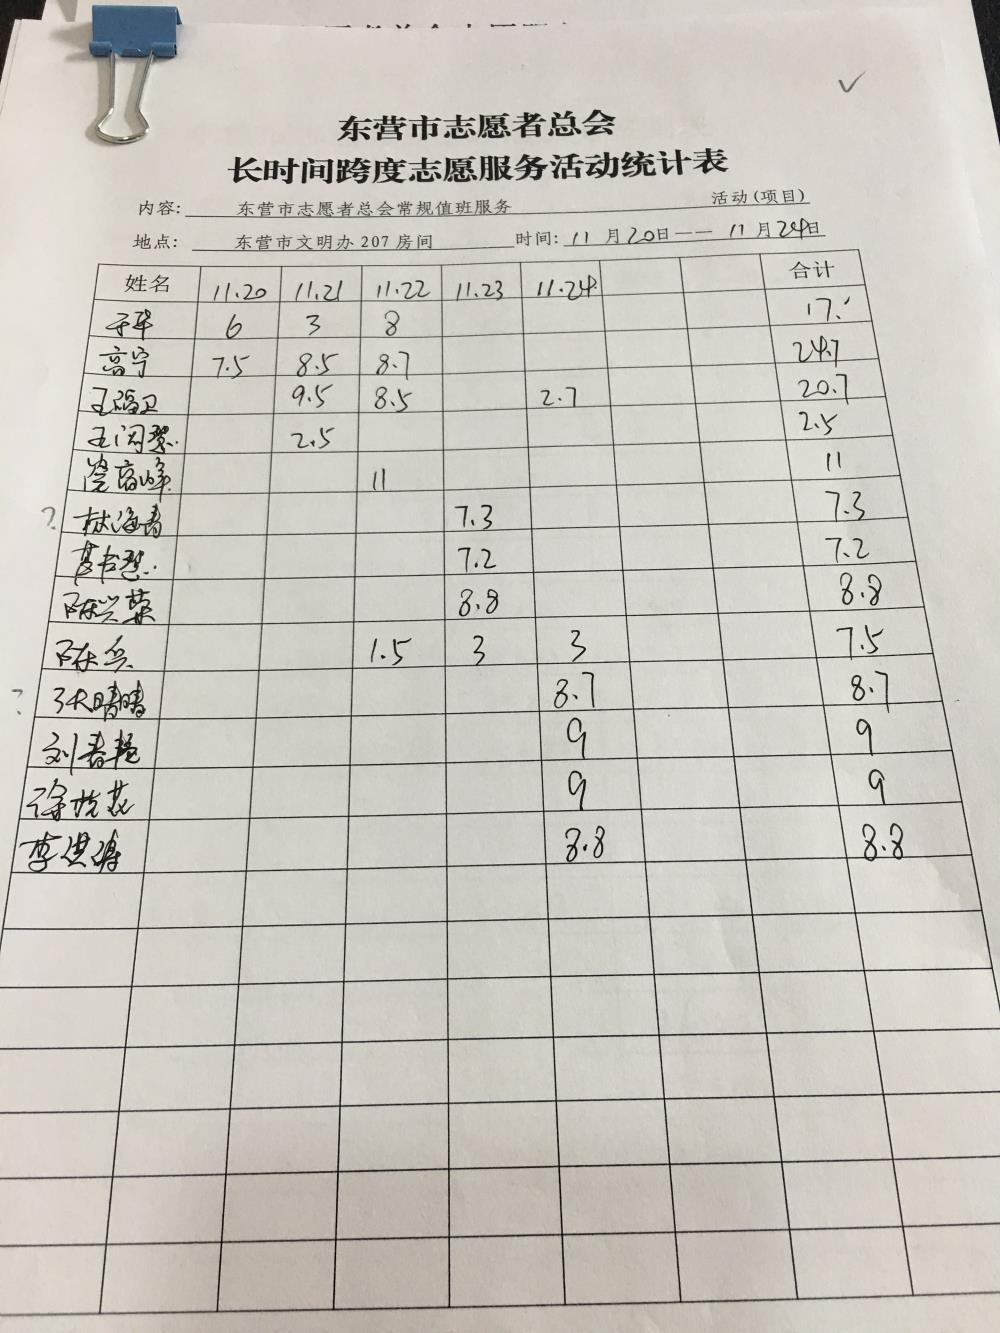 东营市志愿者总会
长时间跨度志愿服务活动统计表
内容: 东营市志愿者总会常规值班服务 活动(项目)
地点: 东营市文明办 207 房间 时间: 11 月 20 日 —— 11 月 24 日
姓名 11.20 11.21 11.22 11.23 11.24 合计
于华 6 3 8 17.
高宁 7.5 8.5 8.7 24.7
王福卫 9.5 8.5 2.7 20.7
王闪慧 2.5 2.5
高峰 11 11
? 林海青 7.3 7.3
7.2 7.2
陈兴荣 8.8 8.8
陈兵 1.5 3 3 7.5
? 张晴晴 8.7 8.7
刘春艳 9 9
徐桂花 9 9
李洪涛 8.8 8.8